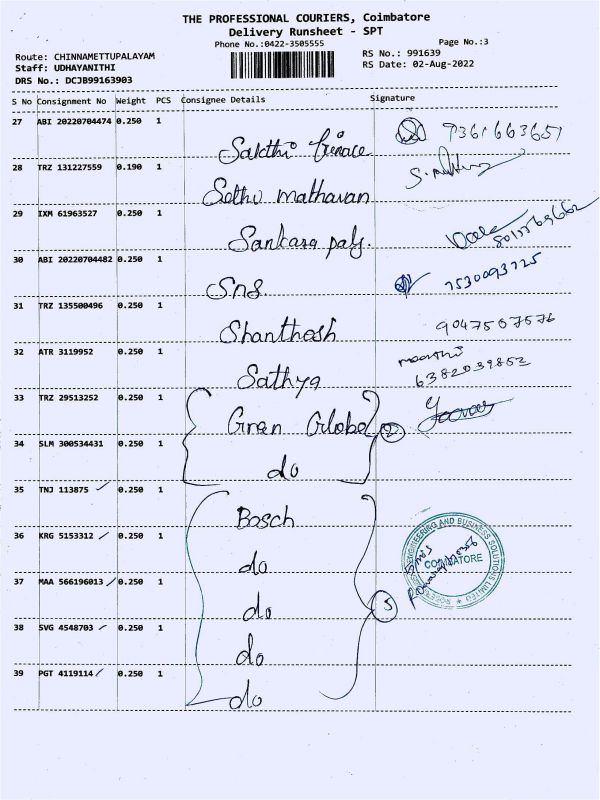 THE PROFESSIONAL COURIERS, Coimbatore
Delivery Runsheet - SPT
Phone No.:0422-3505555
Page No.:3
Route: CHINNAMETTUPALAYAM
RS No.: 991639
Staff: UDHAYANITHI
RS Date: 02-Aug-2022
DRS No.: DCJB99163903
S No Consignment No Weight PCS Consignee Details Signature
27 ABI 20220704474 0.250 1 Sakthi finace 9361663651
28 TRZ 131227559 0.190 1 Sethu mathavan
29 IXM 61963527 0.250 1 Sankara paly.
30 ABI 20220704482 0.250 1 Sns. 7530093725
31 TRZ 135500496 0.250 1 Shanthosh 9047507576
32 ATR 3119952 0.250 1 Sathya 6382039852
33 TRZ 29513252 0.250 1 Gran Globo 2
34 SLM 300534431 0.250 1 do
35 TNJ 113875 0.250 1 Bosch
36 KRG 5153312 0.250 1 do
37 MAA 566196013 0.250 1 do 5
38 SVG 4548703 0.250 1 do
39 PGT 4119114 0.250 1 do
ENGINEERING AND BUSINESS SOLUTIONS LIMITED
COIMBATORE